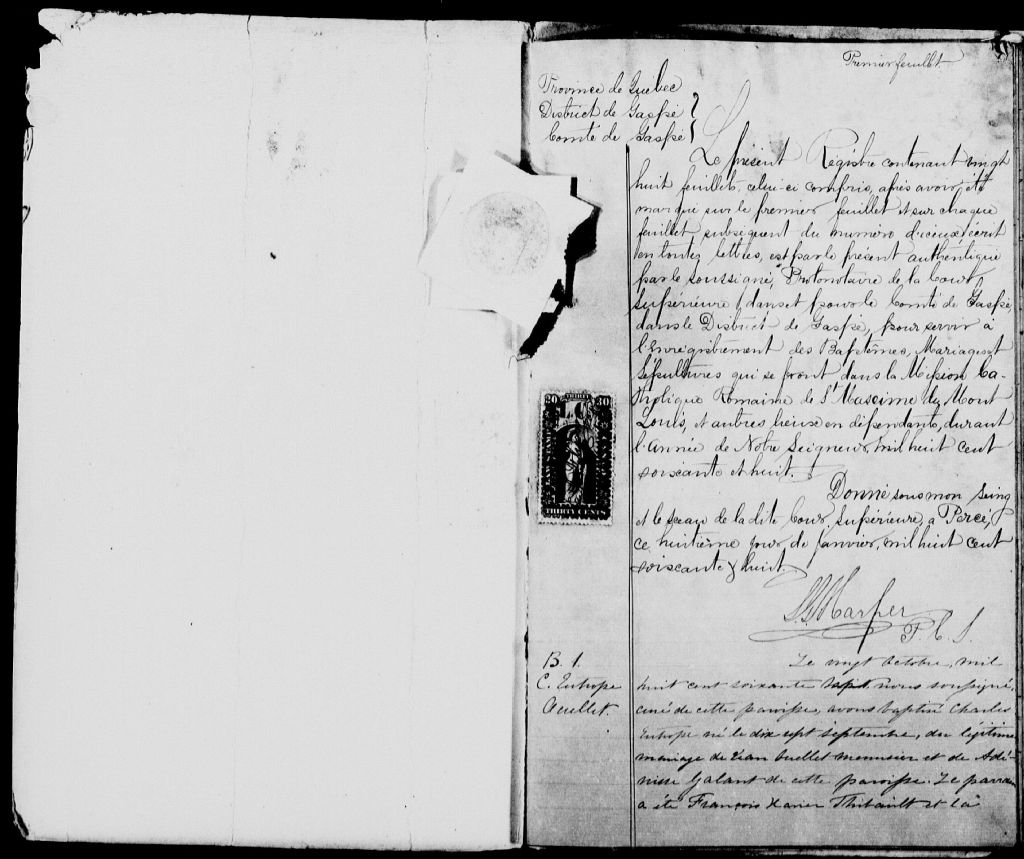 Premier feuillet.
Province de Québec
District de Gaspé
Comté de Gaspé
Le présent Régistre contenant vingt
huit feuillets, celui-ci compris, après avoir été
marqué sur le premier feuillet et sur chaque
feuillet subséquent du numéro d'iceux, écrit
en toutes lettres, est par le présent authentiqué
par le soussigné, Protonotaire de la Cour
Supérieure, dans et pour le Comté de Gaspé,
dans le District de Gaspé, pour servir à
l'Enrégistrement des Baptêmes, Mariages et
Sépultures qui se feront dans la Mission Ca-
tholique Romaine de St Maxime du Mont
Louis, et autres lieux en dépendants, durant
l'année de Notre Seigneur, mil huit cent
soixante et huit.
Donné sous mon Seing
et le sceau de la dite Cour Supérieure, à Percé,
ce huitième jour de Janvier, mil huit cent
soixante & huit.
Harper
P. C. S.
30 THIRTY 30
THIRTY CENTS
B. 1.
C. Eutrope
Ouellet.
Le vingt Octobre, mil
huit cent soixante sept, nous soussigné,
curé de cette paroisse, avons baptisé Charles
Eutrope né le dix sept septembre, du légitime
mariage de Jean Ouellet menuisier et de Adé-
nisse Galant de cette paroisse. Le parrain
a été François Xavier Thibault et la